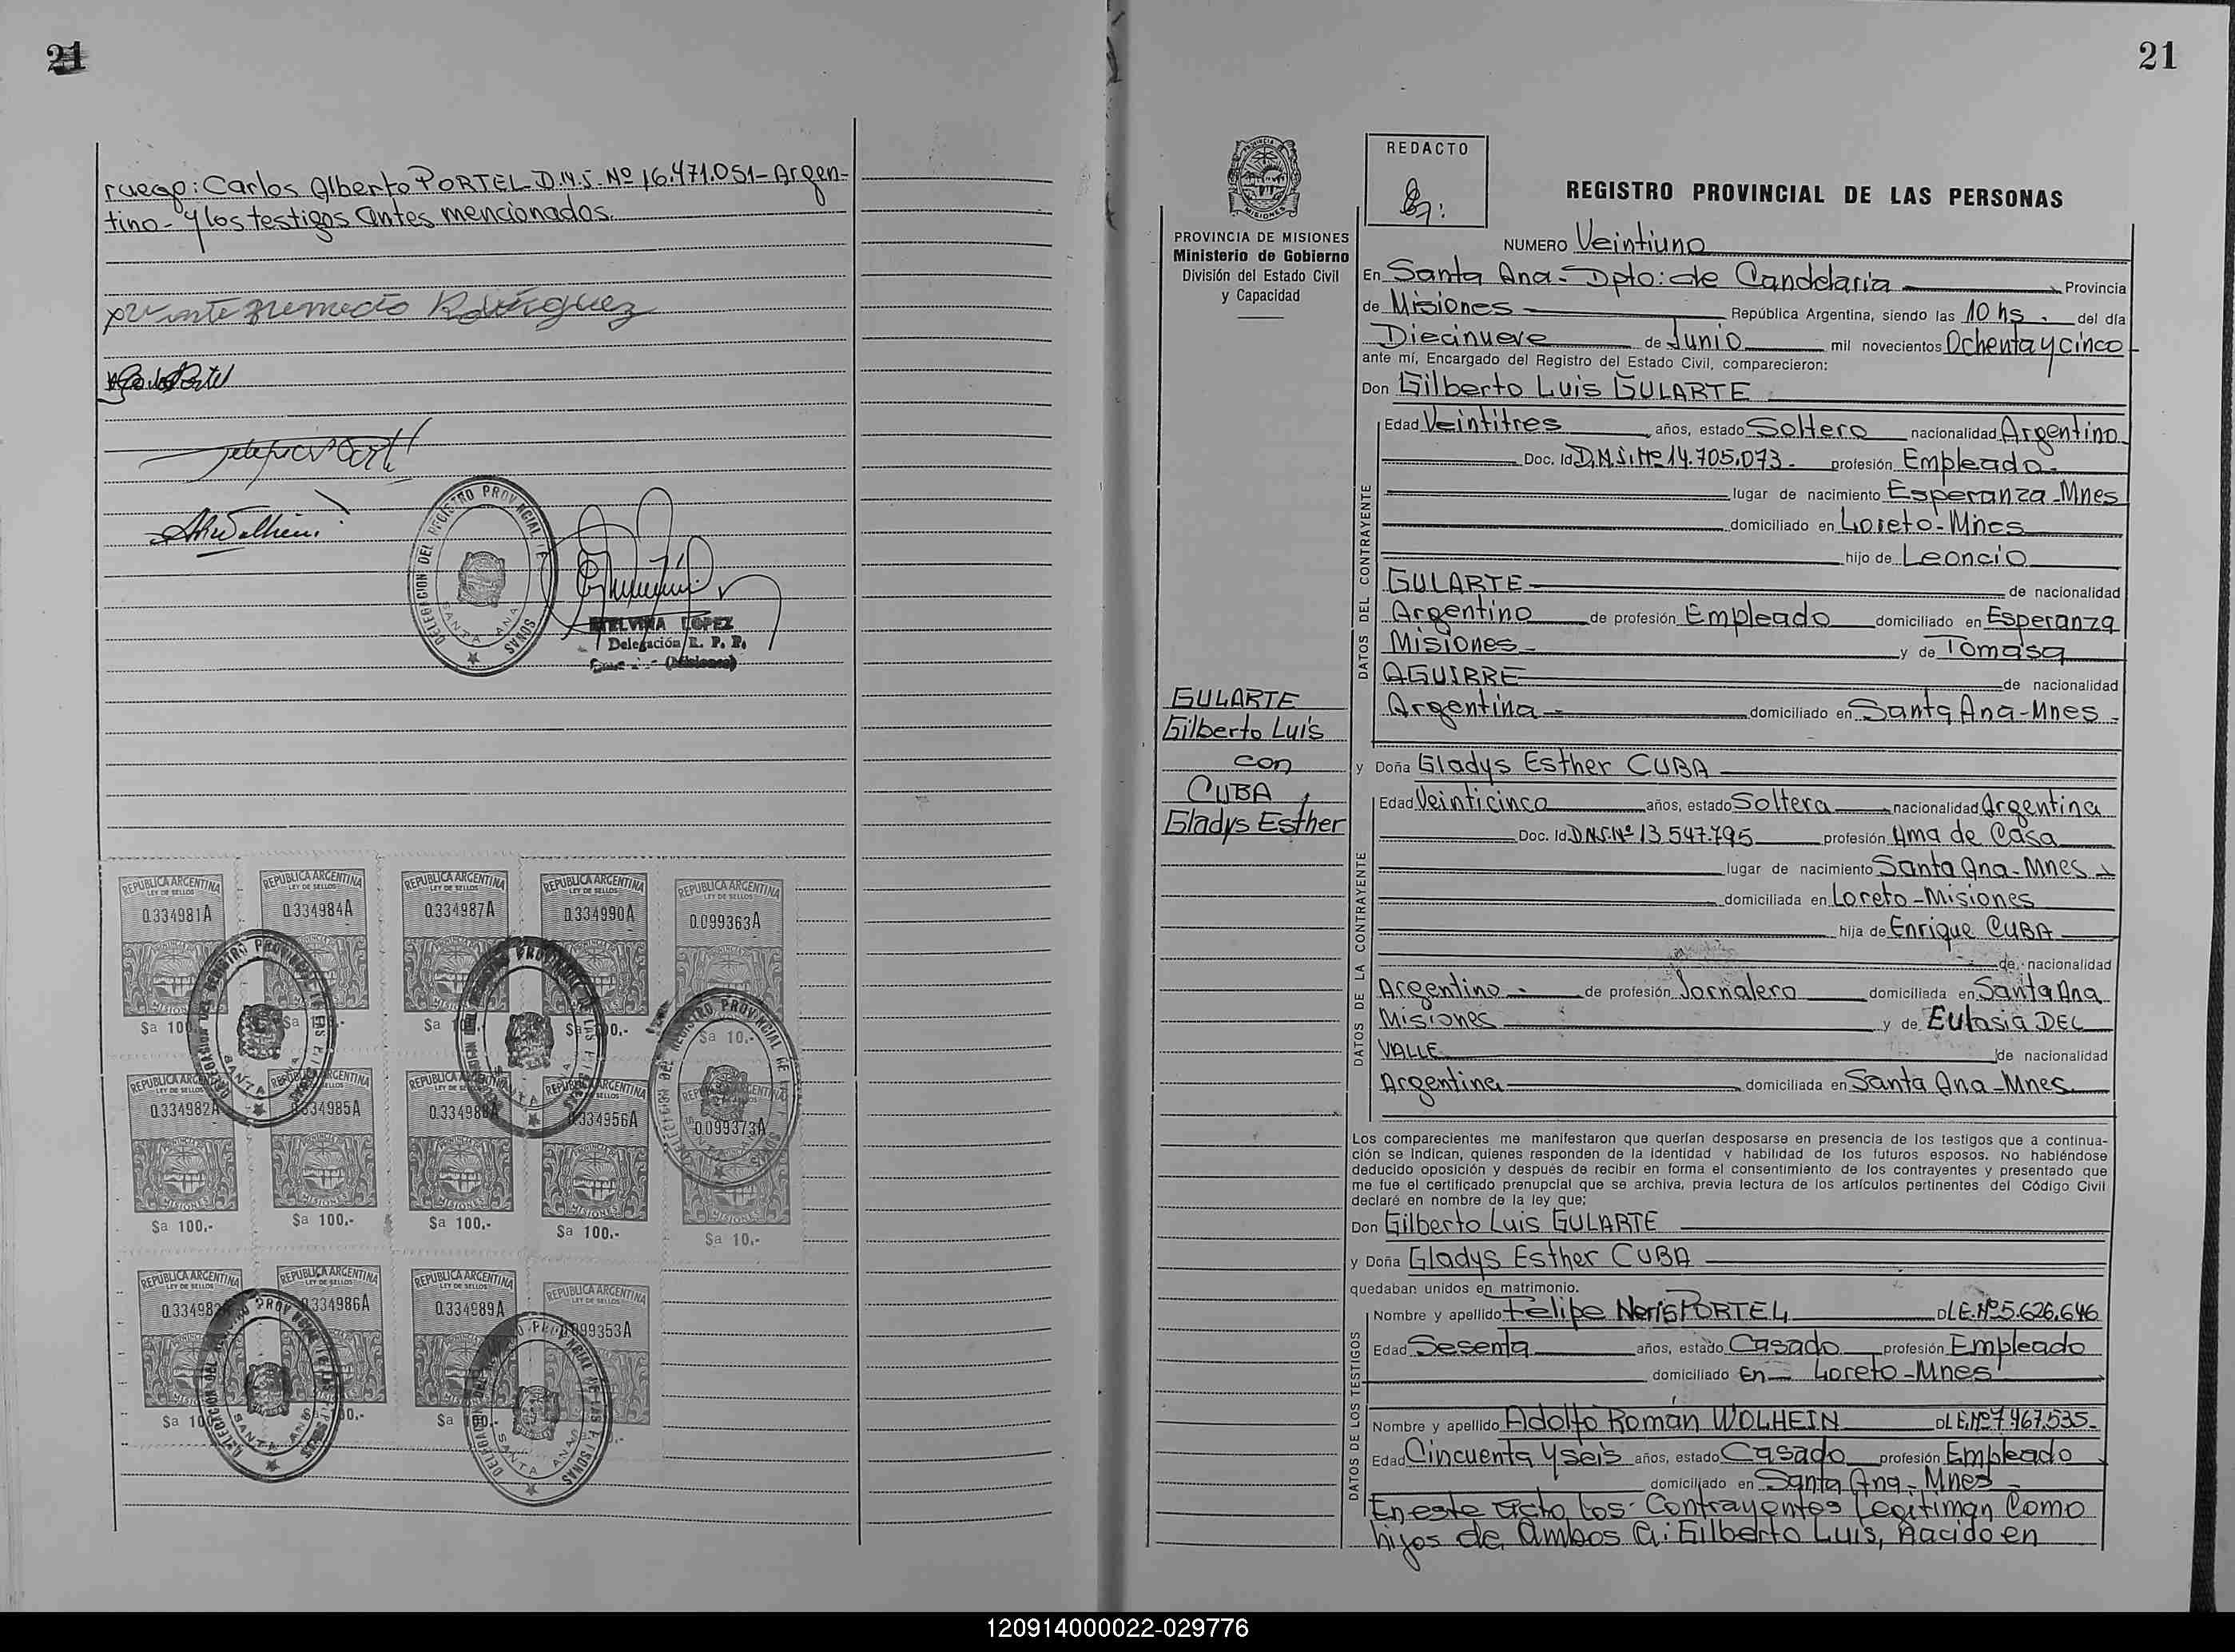 21
ruego: Carlos Alberto PORTEL D.N.I. Nº 16.471.051- Argen-
tino- y los testigos antes mencionados.
Rodriguez
DELEGACION DEL REGISTRO PROVINCIAL DE LAS PERSONAS
SANTA ANA
ETELVINA LOPEZ
Delegación R. P. P.
(Misiones)
REPUBLICA ARGENTINA REPUBLICA ARGENTINA REPUBLICA ARGENTINA REPUBLICA ARGENTINA REPUBLICA ARGENTINA
LEY DE SELLOS LEY DE SELLOS LEY DE SELLOS LEY DE SELLOS LEY DE SELLOS
0.334981A 0.334984A 0.334987A 0.334990A 0.099363A
MISIONES
$a 10.-
REPUBLICA ARGENTINA REPUBLICA ARGENTINA REPUBLICA ARGENTINA REPUBLICA ARGENTINA REPUBLICA ARGENTINA
0.334982A 0.334985A 0.334956A 0.099373A
MISIONES MISIONES MISIONES MISIONES MISIONES
$a 100.- $a 100.- $a 100.- $a 100.- $a 10.-
REPUBLICA ARGENTINA REPUBLICA ARGENTINA REPUBLICA ARGENTINA REPUBLICA ARGENTINA
LEY DE SELLOS LEY DE SELLOS LEY DE SELLOS LEY DE SELLOS
0.334986A 0.334989A
21
PROVINCIA DE MISIONES
Ministerio de Gobierno
División del Estado Civil
y Capacidad
GULARTE
Gilberto Luis
con
CUBA
Gladys Esther
REDACTO
REGISTRO PROVINCIAL DE LAS PERSONAS
NUMERO Veintiuno
En Santa Ana- Dpto: de Candelaria Provincia
de Misiones República Argentina, siendo las 10 hs. del día
Diecinueve de Junio mil novecientos Ochenta y cinco
ante mí, Encargado del Registro del Estado Civil, comparecieron:
Don Gilberto Luis GULARTE
DATOS DEL CONTRAYENTE
Edad Veintitres años, estado Soltero nacionalidad Argentino
Doc. Id D.N.I. Nº 14.705.073- profesión Empleado-
lugar de nacimiento Esperanza-Mnes
domiciliado en Loreto-Mnes
hijo de Leoncio
GULARTE de nacionalidad
Argentino de profesión Empleado domiciliado en Esperanza
Misiones y de Tomasa
AGUIRRE de nacionalidad
Argentina domiciliado en Santa Ana-Mnes-
y Doña Gladys Esther CUBA
DATOS DE LA CONTRAYENTE
Edad Veinticinco años, estado Soltera nacionalidad Argentina
Doc. Id D.N.I. Nº 13.547.795 profesión Ama de Casa
lugar de nacimiento Santa Ana-Mnes
domiciliada en Loreto-Misiones
hija de Enrique CUBA
de nacionalidad
Argentino- de profesión Jornalero domiciliada en Santa Ana
Misiones y de Eulasia DEL
VALLE de nacionalidad
Argentina domiciliada en Santa Ana-Mnes.
Los comparecientes me manifestaron que querían desposarse en presencia de los testigos que a continua-
ción se indican, quienes responden de la identidad y habilidad de los futuros esposos. No habiéndose
deducido oposición y después de recibir en forma el consentimiento de los contrayentes y presentado que
me fue el certificado prenupcial que se archiva, previa lectura de los artículos pertinentes del Código Civil
declaré en nombre de la ley que:
Don Gilberto Luis GULARTE
y Doña Gladys Esther CUBA
quedaban unidos en matrimonio.
DATOS DE LOS TESTIGOS
Nombre y apellido Felipe Neris PORTEL DLE.Nº5.626.646
Edad Sesenta años, estado Casado profesión Empleado
domiciliado En- Loreto-Mnes
Nombre y apellido Adolfo Roman WOLHEIN DLE.Nº7.467.535-
Edad Cincuenta y seis años, estado Casado profesión Empleado
domiciliado en Santa Ana,-Mnes-
En este acto los Contrayentes Legitiman Como
hijos de ambos a: Gilberto Luis, nacido en
120914000022-029776